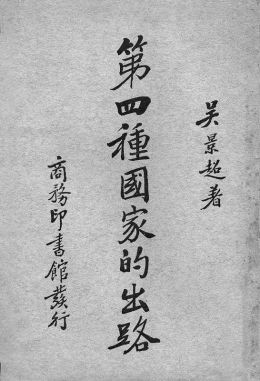 吴景超著
第四種國家的出路
商務印書館發行